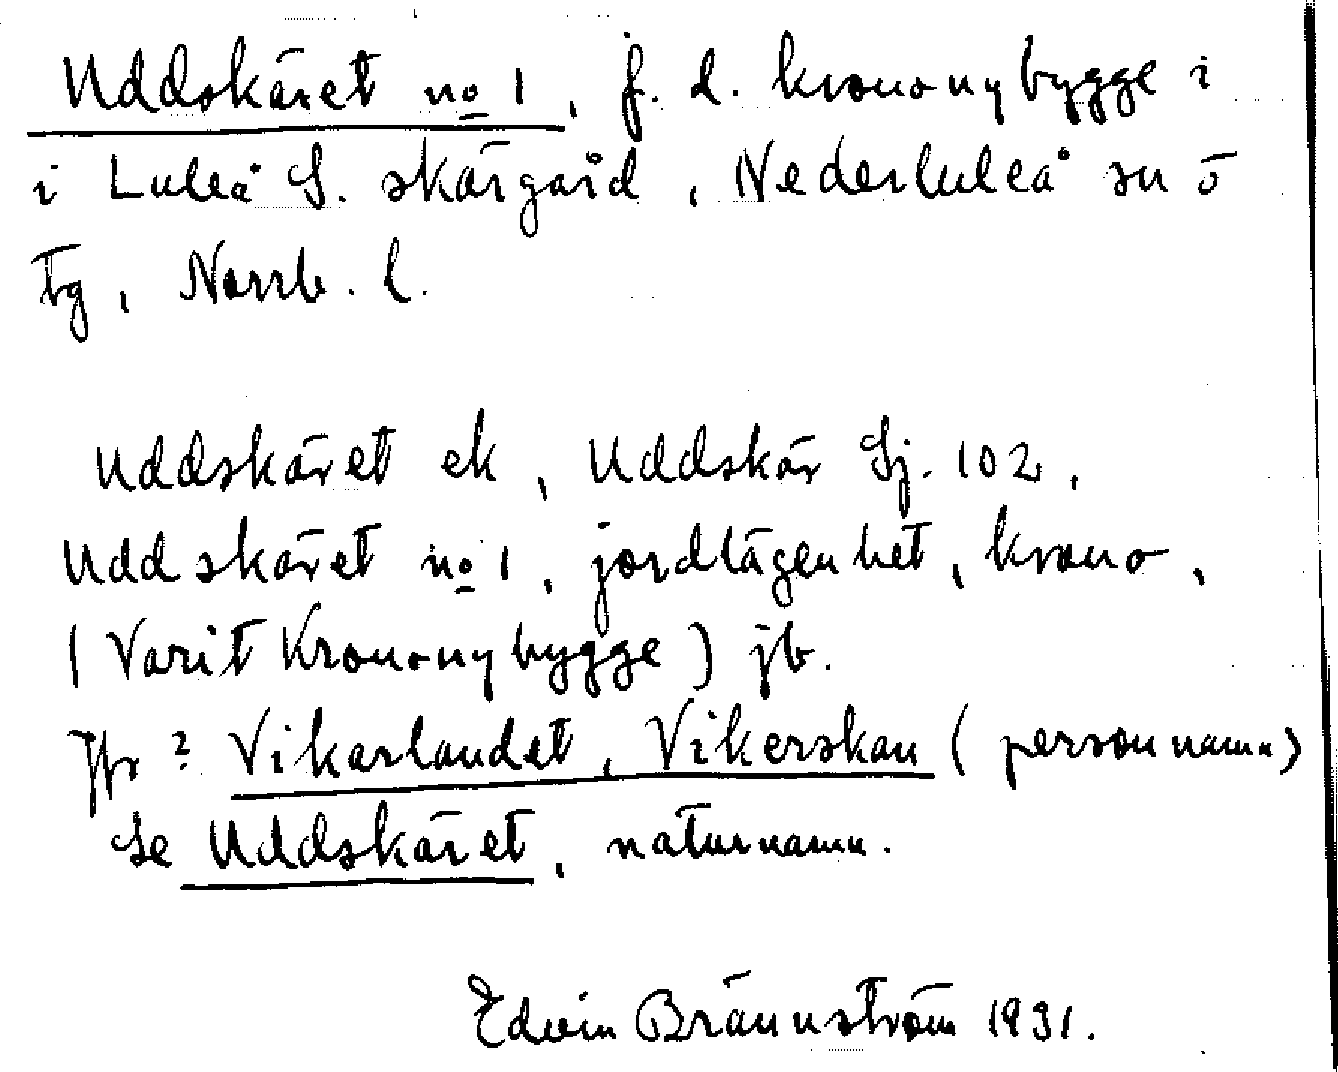 Uddskäret no 1, f. d. krononybygge i
i Luleå S. skärgård, Nederluleå sn ö
tg, Norrb. l.
Uddskäret ek, Uddskär Sj. 102,
Uddskäret no 1, jordlägenhet, krono,
(Varit Krononybygge) jb.
Jfr ? Vikarlandet, Vikerskan (personnamn)
Se Uddskäret, naturnamn.
Edvin Brännström 1931.